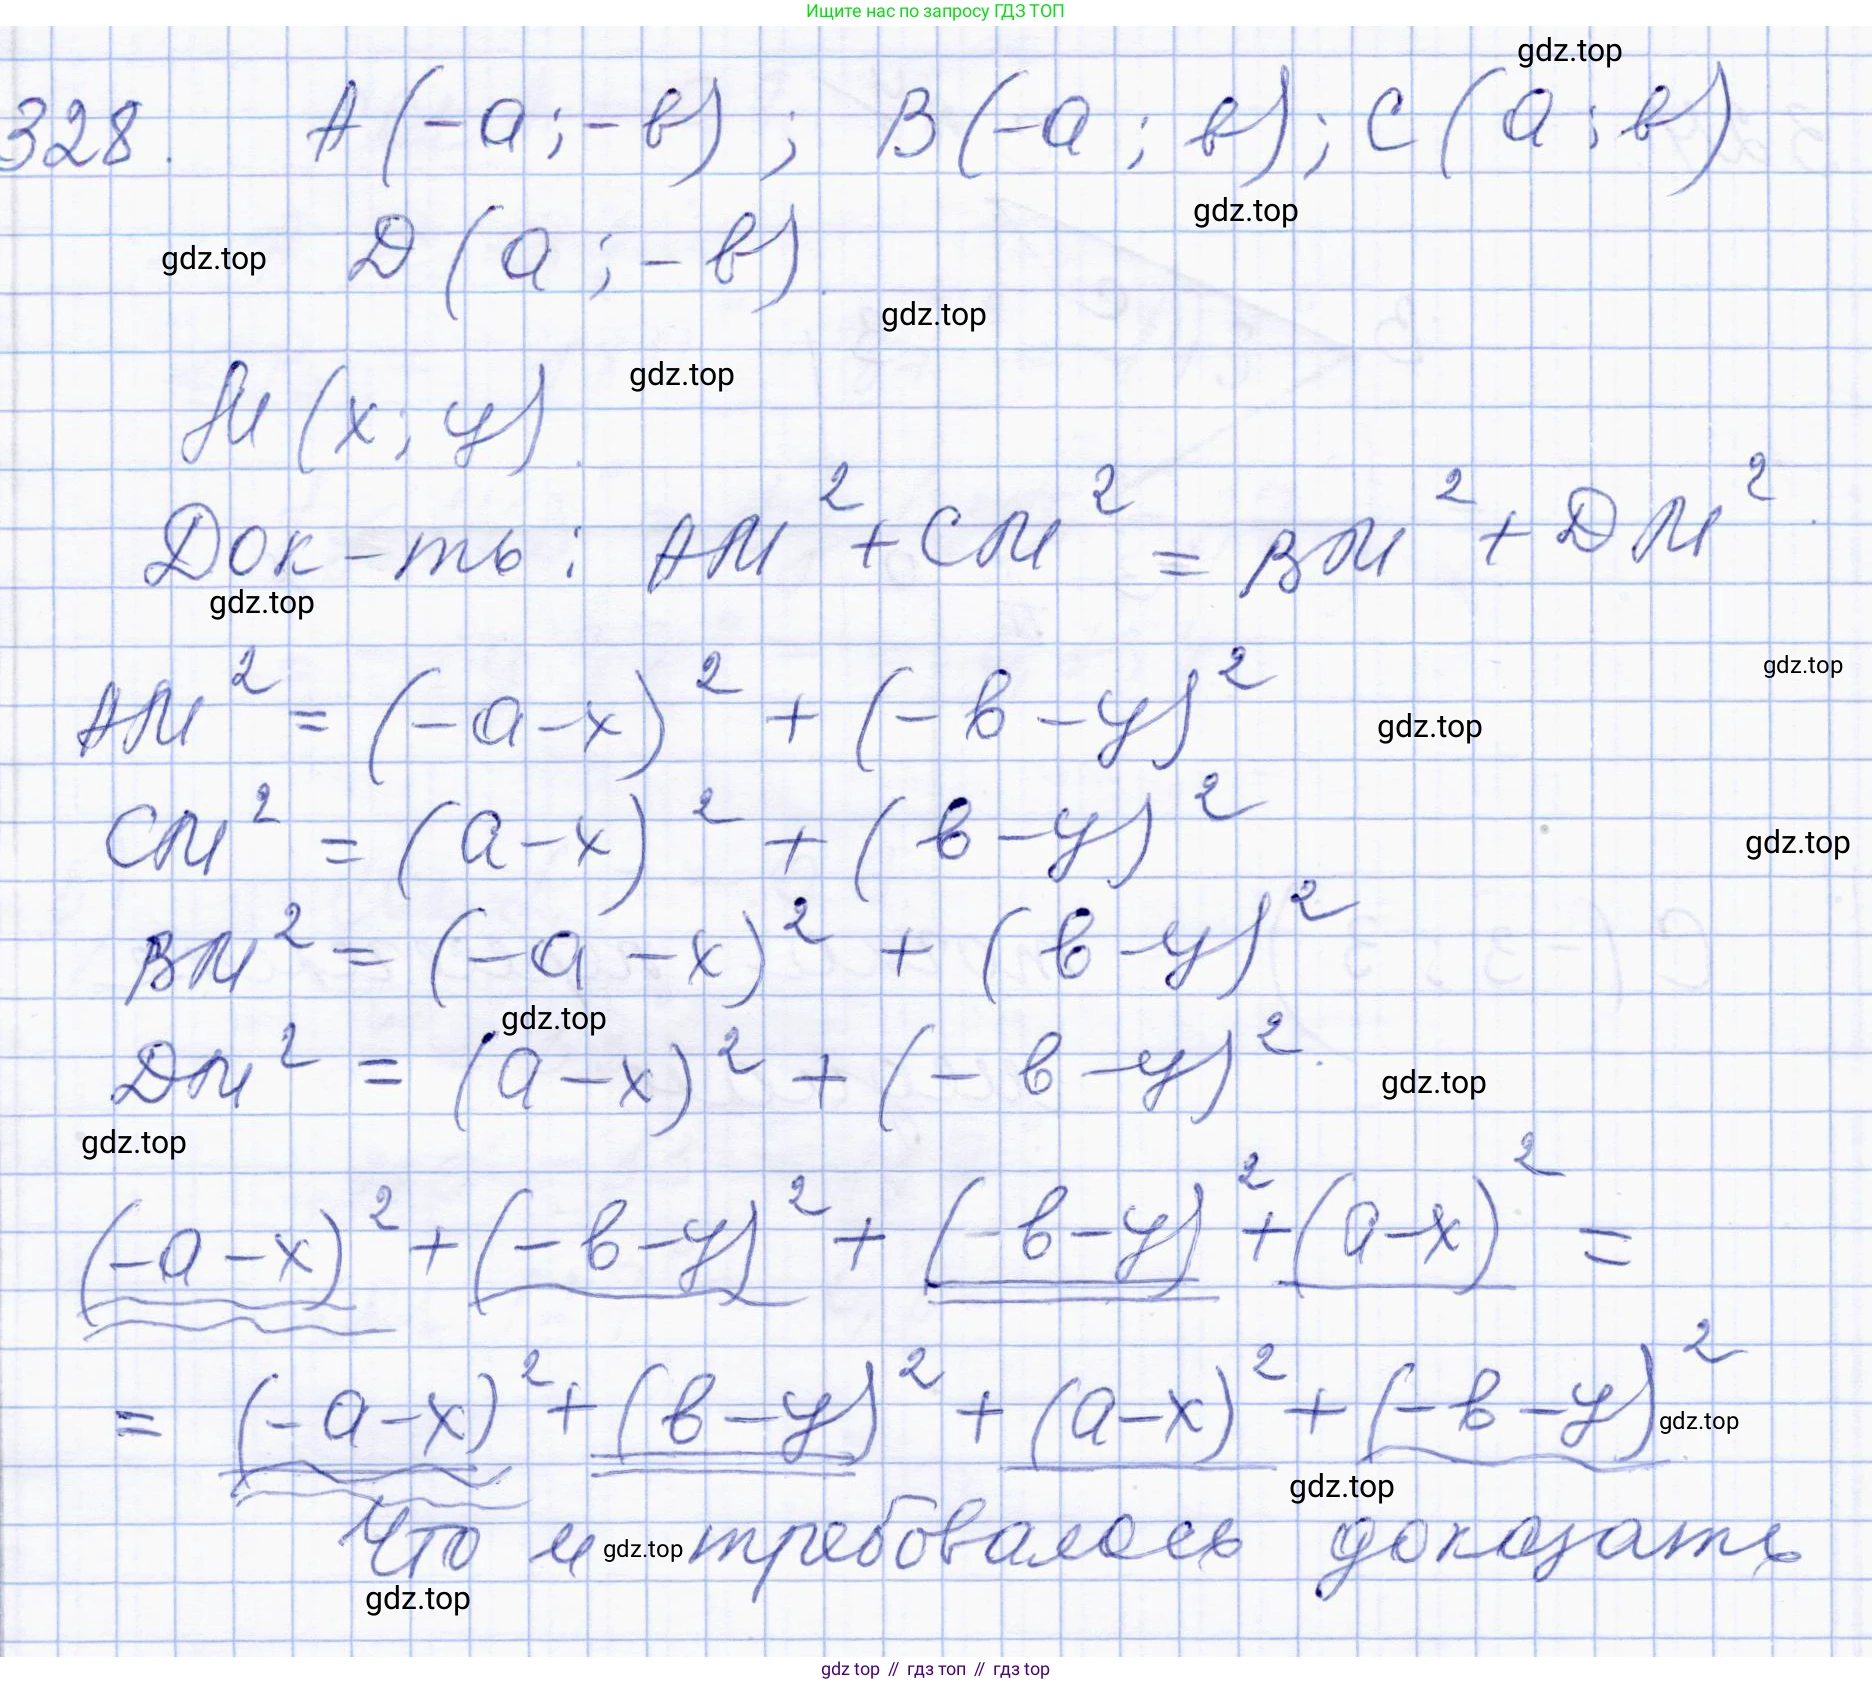 Ищите нас по запросу ГДЗ ТОП
gdz.top
328. A(-a;-в); B(-a;в); C(a;в)
gdz.top
gdz.top D(a;-в).
gdz.top
gdz.top
M(x;y).
Док-ть: AM²+CM² = BM²+DM².
gdz.top
gdz.top
AM² = (-a-x)² + (-в-y)²
gdz.top
CM² = (a-x)² + (в-y)²
gdz.top
BM² = (-a-x)² + (в-y)²
gdz.top
DM² = (a-x)² + (-в-y)².
gdz.top
gdz.top
(-a-x)² + (-в-y)² + (-в-y)² + (a-x)² =
= (-a-x)² + (в-y)² + (a-x)² + (-в-y)²
gdz.top
gdz.top
Что и требовалось доказать
gdz.top
gdz.top
gdz top // гдз топ // гдз top